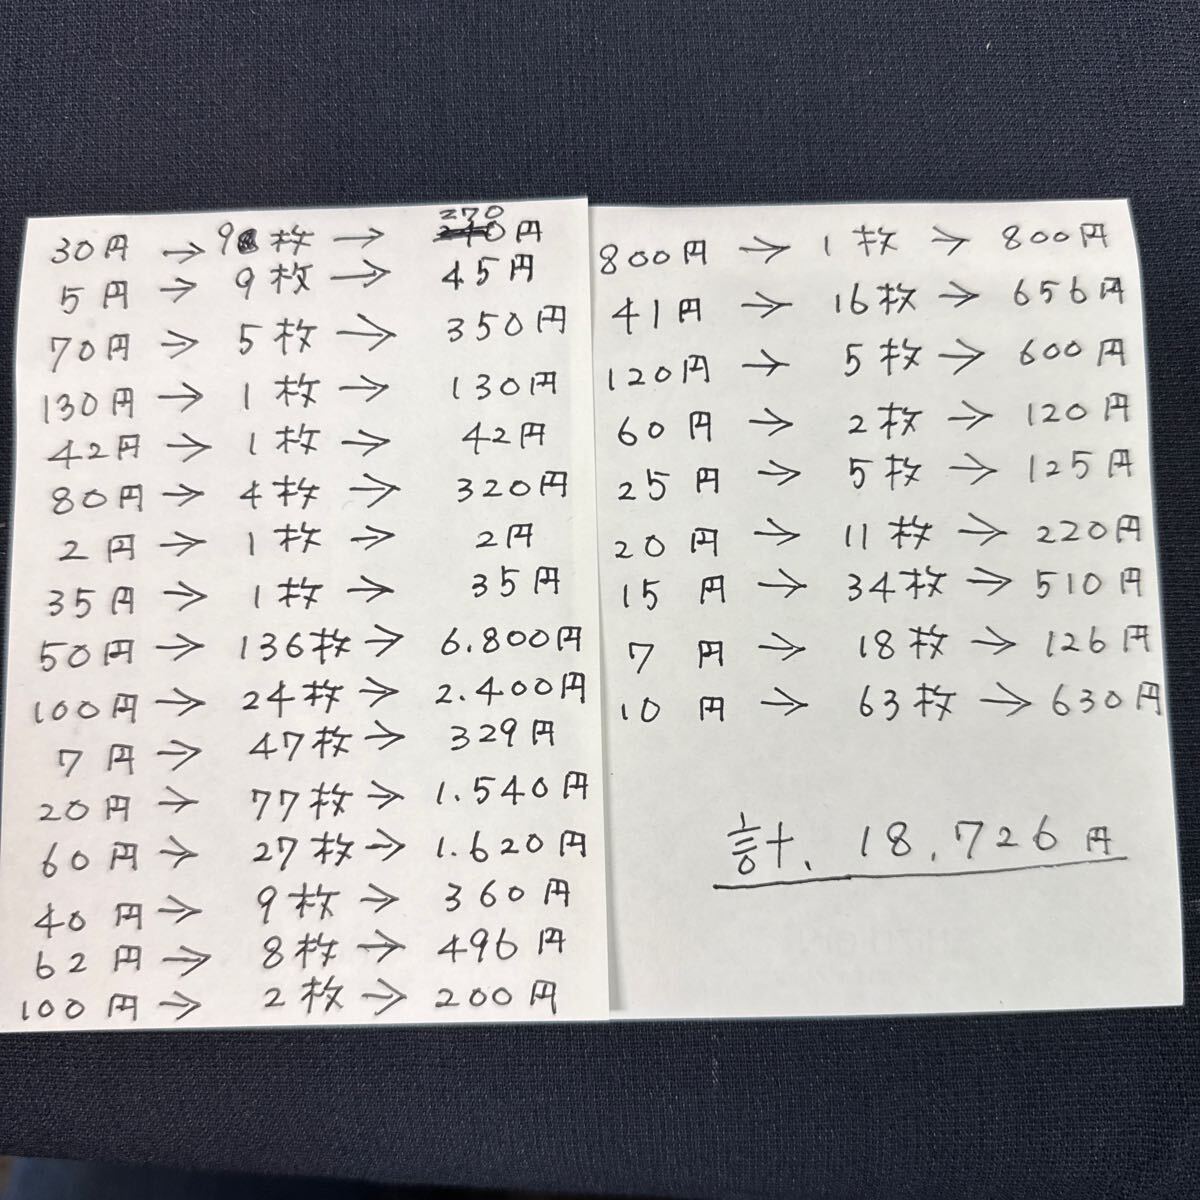 30円 → 9枚 → 270円
5円 → 9枚 → 45円
70円 → 5枚 → 350円
130円 → 1枚 → 130円
42円 → 1枚 → 42円
80円 → 4枚 → 320円
2円 → 1枚 → 2円
35円 → 1枚 → 35円
50円 → 136枚 → 6.800円
100円 → 24枚 → 2.400円
7円 → 47枚 → 329円
20円 → 77枚 → 1.540円
60円 → 27枚 → 1.620円
40円 → 9枚 → 360円
62円 → 8枚 → 496円
100円 → 2枚 → 200円
800円 → 1枚 → 800円
41円 → 16枚 → 656円
120円 → 5枚 → 600円
60円 → 2枚 → 120円
25円 → 5枚 → 125円
20円 → 11枚 → 220円
15円 → 34枚 → 510円
7円 → 18枚 → 126円
10円 → 63枚 → 630円
計. 18.726円